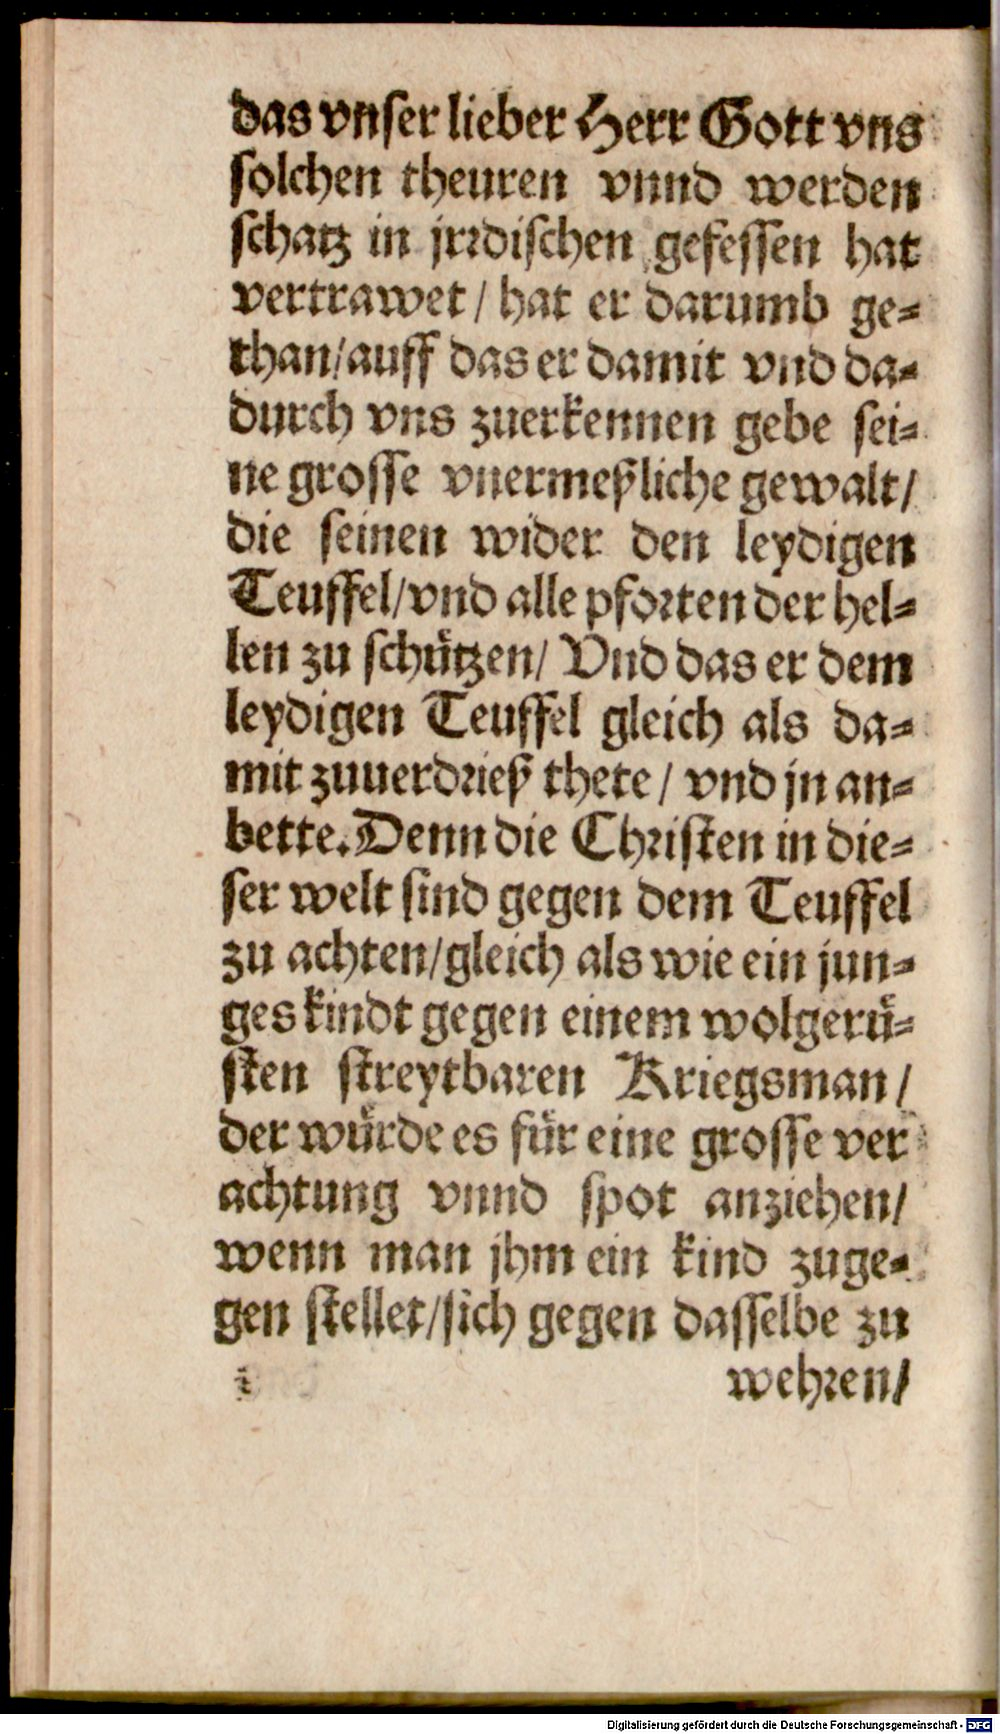 das vnser lieber Herr Gott vns
solchen theuren vnnd werden
schatz in jrrdischen gefessen hat
vertrawet / hat er darumb ge-
than/auff das er damit vnd da-
durch vns zuerkennen gebe sei-
ne grosse vnermeßliche gewalt/
die seinen wider den leydigen
Teuffel/vnd alle pforten der hel-
len zu schützen/ Vnd das er dem
leydigen Teuffel gleich als da-
mit zuuerdrieß thete / vnd jn an-
bette. Denn die Christen in die-
ser welt sind gegen dem Teuffel
zu achten/gleich als wie ein jun-
ges kindt gegen einem wolgerü-
sten streytbaren Kriegsman /
der würde es für eine grosse ver
achtung vnnd spot anziehen/
wenn man jhm ein kind zuge-
gen stellet/sich gegen dasselbe zu
wehren/
Digitalisierung gefördert durch die Deutsche Forschungsgemeinschaft - DFG